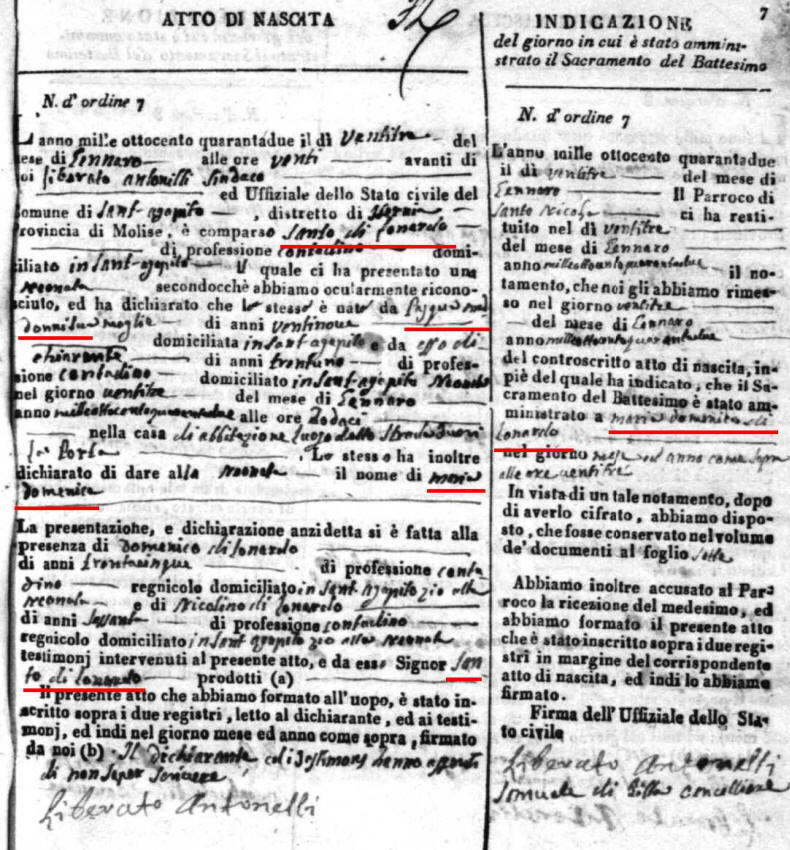 ATTO DI NASCITA
N. d' ordine 7
L'anno mille ottocento quarantadue il dì ventitre del
mese di Gennaro alle ore venti avanti di
noi Liberato Antonelli Sindaco
ed Uffiziale dello Stato civile del
Comune di Sant-agapito, distretto di Isernia
Provincia di Molise, è comparso Santo di Lonardo
di professione contadino domi-
ciliato in Sant-agapito il quale ci ha presentato una
Neonata secondocchè abbiamo ocularmente ricono-
sciuto, ed ha dichiarato che lo stesso è nato da
moglie di anni ventinove
domiciliata in Sant-agapito e da esso di-
chiarante di anni trentuno di profes-
sione contadino domiciliato in Sant-agapito Neonata
nel giorno ventitre del mese di Gennaro
anno milleottocentoquarantadue alle ore Dodaci
nella casa di abbitazione luogo detto Strada Fuori
la Porta. Lo stesso ha inoltre
dichiarato di dare alla Neonata il nome di Maria
Domenica
La presentazione, e dichiarazione anzidetta si è fatta alla
presenza di Domenico di Lonardo
di anni trentacinque di professione conta
dino regnicolo domiciliato in Sant Agapito zio alla
Neonata e di Nicolino di Lonardo
di anni sessanta di professione contadino
regnicolo domiciliato in Sant Agapito zio alla Neonata
testimonj intervenuti al presente atto, e da esso Signor San
to di Lonardo prodotti (a)
Il presente atto che abbiamo formato all'uopo, è stato in-
scritto sopra i due registri, letto al dichiarante, ed ai testi-
monj, ed indi nel giorno mese ed anno come sopra, firmato
da noi (b) Il dichiarante ed i Testimonj hanno
di non saper scrivere
Liberato Antonelli
7
INDICAZIONE
del giorno in cui è stato ammini-
strato il Sacramento del Battesimo
N. d' ordine 7
L'anno mille ottocento quarantadue
il dì ventitre del mese di
Gennaro Il Parroco di
Santo Nicola ci ha resti-
tuito nel dì ventitre
del mese di Gennaro
anno milleottocentoquarantadue il no-
tamento, che noi gli abbiamo rimes-
so nel giorno ventitre
del mese di Gennaro
anno milleottocentoquarantadue
del controscritto atto di nascita, in-
piè del quale ha indicato, che il Sa-
cramento del Battesimo è stato am-
ministrato a Maria Domenica di
Lonardo
nel giorno mese ed anno come sopra
alle ore ventitre
In vista di un tale notamento, dopo
di averlo cifrato, abbiamo dispo-
sto, che fosse conservato nel volume
de' documenti al foglio sette
Abbiamo inoltre accusato al Par-
roco la ricezione del medesimo, ed
abbiamo formato il presente atto
che è stato inscritto sopra i due regi-
stri in margine del corrispondente
atto di nascita, ed indi lo abbiamo
firmato.
Firma dell' Uffiziale dello Sta-
to civile
Liberato Antonelli
di cancelliere